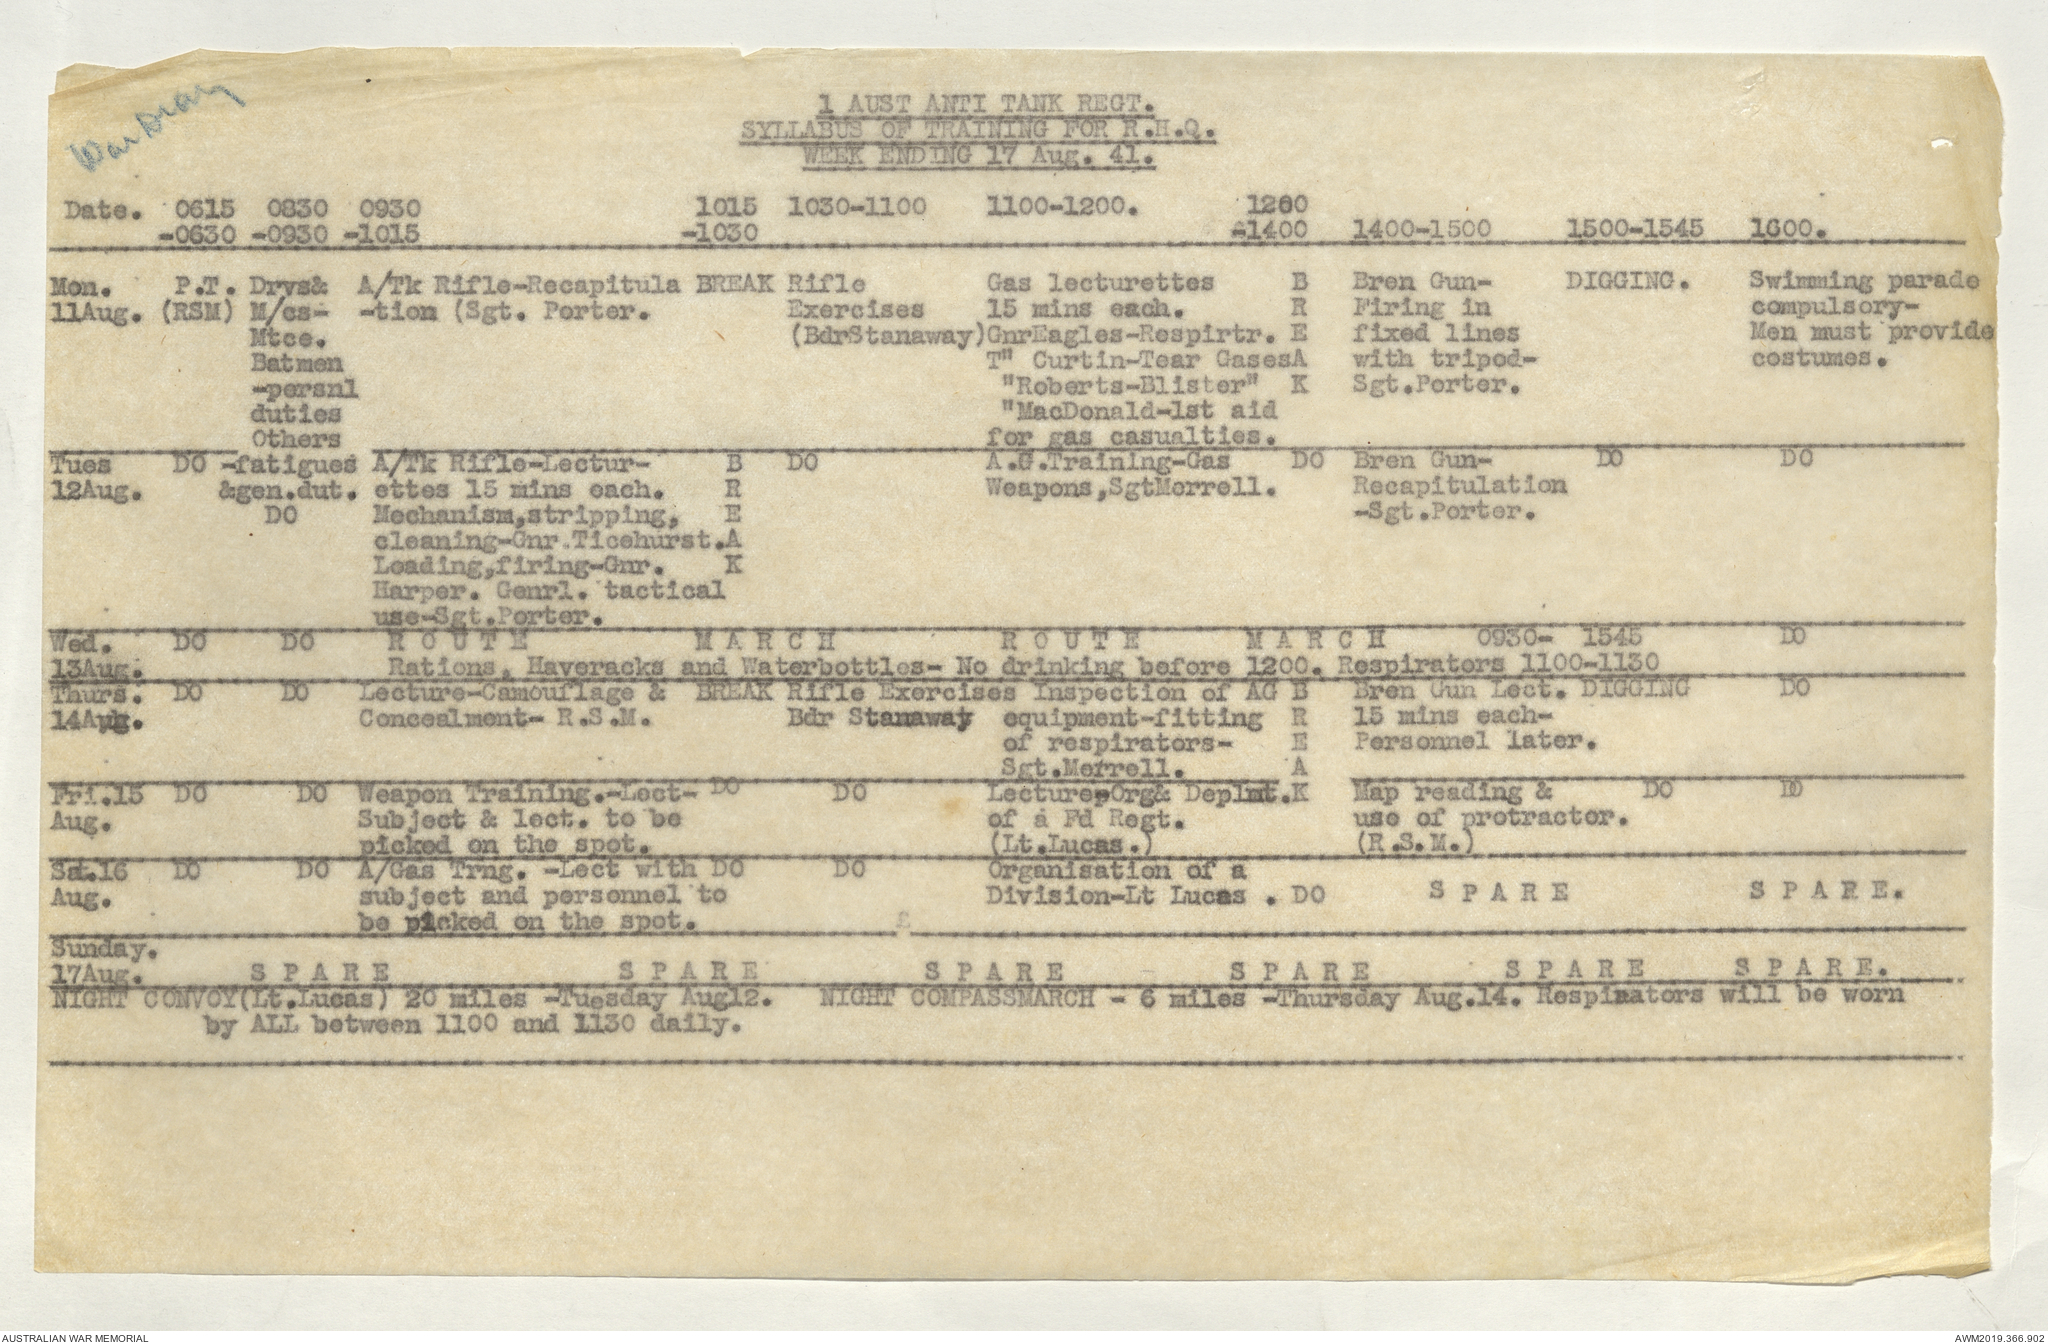 War Diary
1 AUST ANTI TANK REGT.
SYLLABUS OF TRAINING FOR R.H.Q.
WEEK ENDING 17 Aug. 41.
Date. 0615 0830 0930 1015 1030-1100 1100-1200. 1200
-0630 -0930 -1015 -1030 -1400 1400-1500 1500-1545 1600.
Mon. P.T. Drvs& A/Tk Rifle-Recapitula BREAK Rifle Gas lecturettes B Bren Gun- DIGGING. Swimming parade
11Aug. (RSM) M/cs- -tion (Sgt. Porter. Exercises 15 mins each. R Firing in compulsory-
Mtce. (BdrStanaway) GnrEagles-Respirtr. E fixed lines Men must provide
Batmen T" Curtin-Tear Gases A with tripod- costumes.
-persnl "Roberts-Blister" K Sgt.Porter.
duties "MacDonald-1st aid
Others for gas casualties.
Tues DO -fatigues A/Tk Rifle-Lectur- B DO A.G.Training-Gas DO Bren Gun- DO DO
12Aug. &gen.dut. ettes 15 mins each. R Weapons,SgtMerrell. Recapitulation
DO Mechanism,stripping, E -Sgt.Porter.
cleaning-Gnr.Ticehurst. A
Loading,firing-Gnr. K
Harper. Genrl. tactical
use-Sgt.Porter.
Wed. DO DO R O U T E M A R C H R O U T E M A R C H 0930- 1545 DO
13Aug. Rations, Haveracks and Waterbottles- No drinking before 1200. Respirators 1100-1130
Thurs. DO DO Lecture-Camouflage & BREAK Rifle Exercises Inspection of AG B Bren Gun Lect. DIGGING DO
14Aug. Concealment- R.S.M. Bdr Stanaway equipment-fitting R 15 mins each-
of respirators- E Personnel later.
Sgt.Merrell. A
Fri.15 DO DO Weapon Training.-Lect- DO DO Lecture-Org& Deplmt. K Map reading & DO DO
Aug. Subject & lect. to be of a Fd Regt. use of protractor.
picked on the spot. (Lt.Lucas.) (R.S.M.)
Sat.16 DO DO A/Gas Trng. -Lect with DO DO Organisation of a
Aug. subject and personnel to Division-Lt Lucas . DO S P A R E S P A R E.
be picked on the spot.
Sunday.
17Aug. S P A R E S P A R E S P A R E S P A R E S P A R E S P A R E.
NIGHT CONVOY(Lt.Lucas) 20 miles -Tuesday Aug12. NIGHT COMPASSMARCH - 6 miles -Thursday Aug.14. Respirators will be worn
by ALL between 1100 and 1130 daily.
AUSTRALIAN WAR MEMORIAL AWM2019.366.902